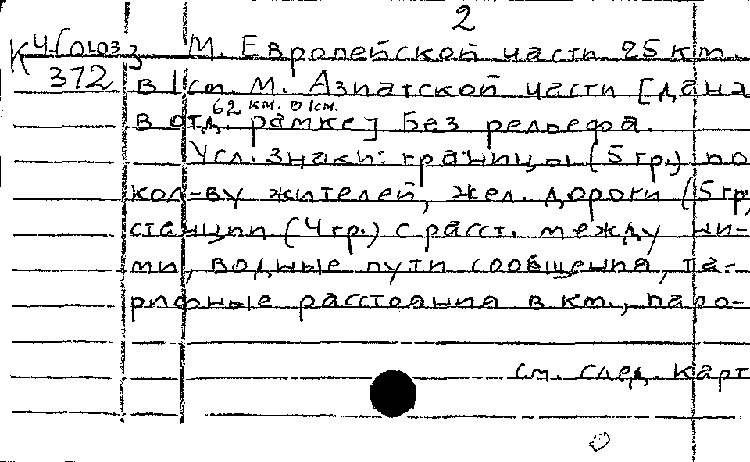 2
К 4-(0103) М. Европейской части 25 км.
372 в 1 см. М. Азиатской части [дана
62 км. в 1 см.
в отд. рамке] Без рельефа.
Усл. знаки: границы (5 гр.) по
кол-ву жителей, жел. дороги (5 гр,
станции (4 гр.) с расст. между ни-
ми, водные пути сообщения, та-
рифные расстояния в км., паро-
см. след. карт